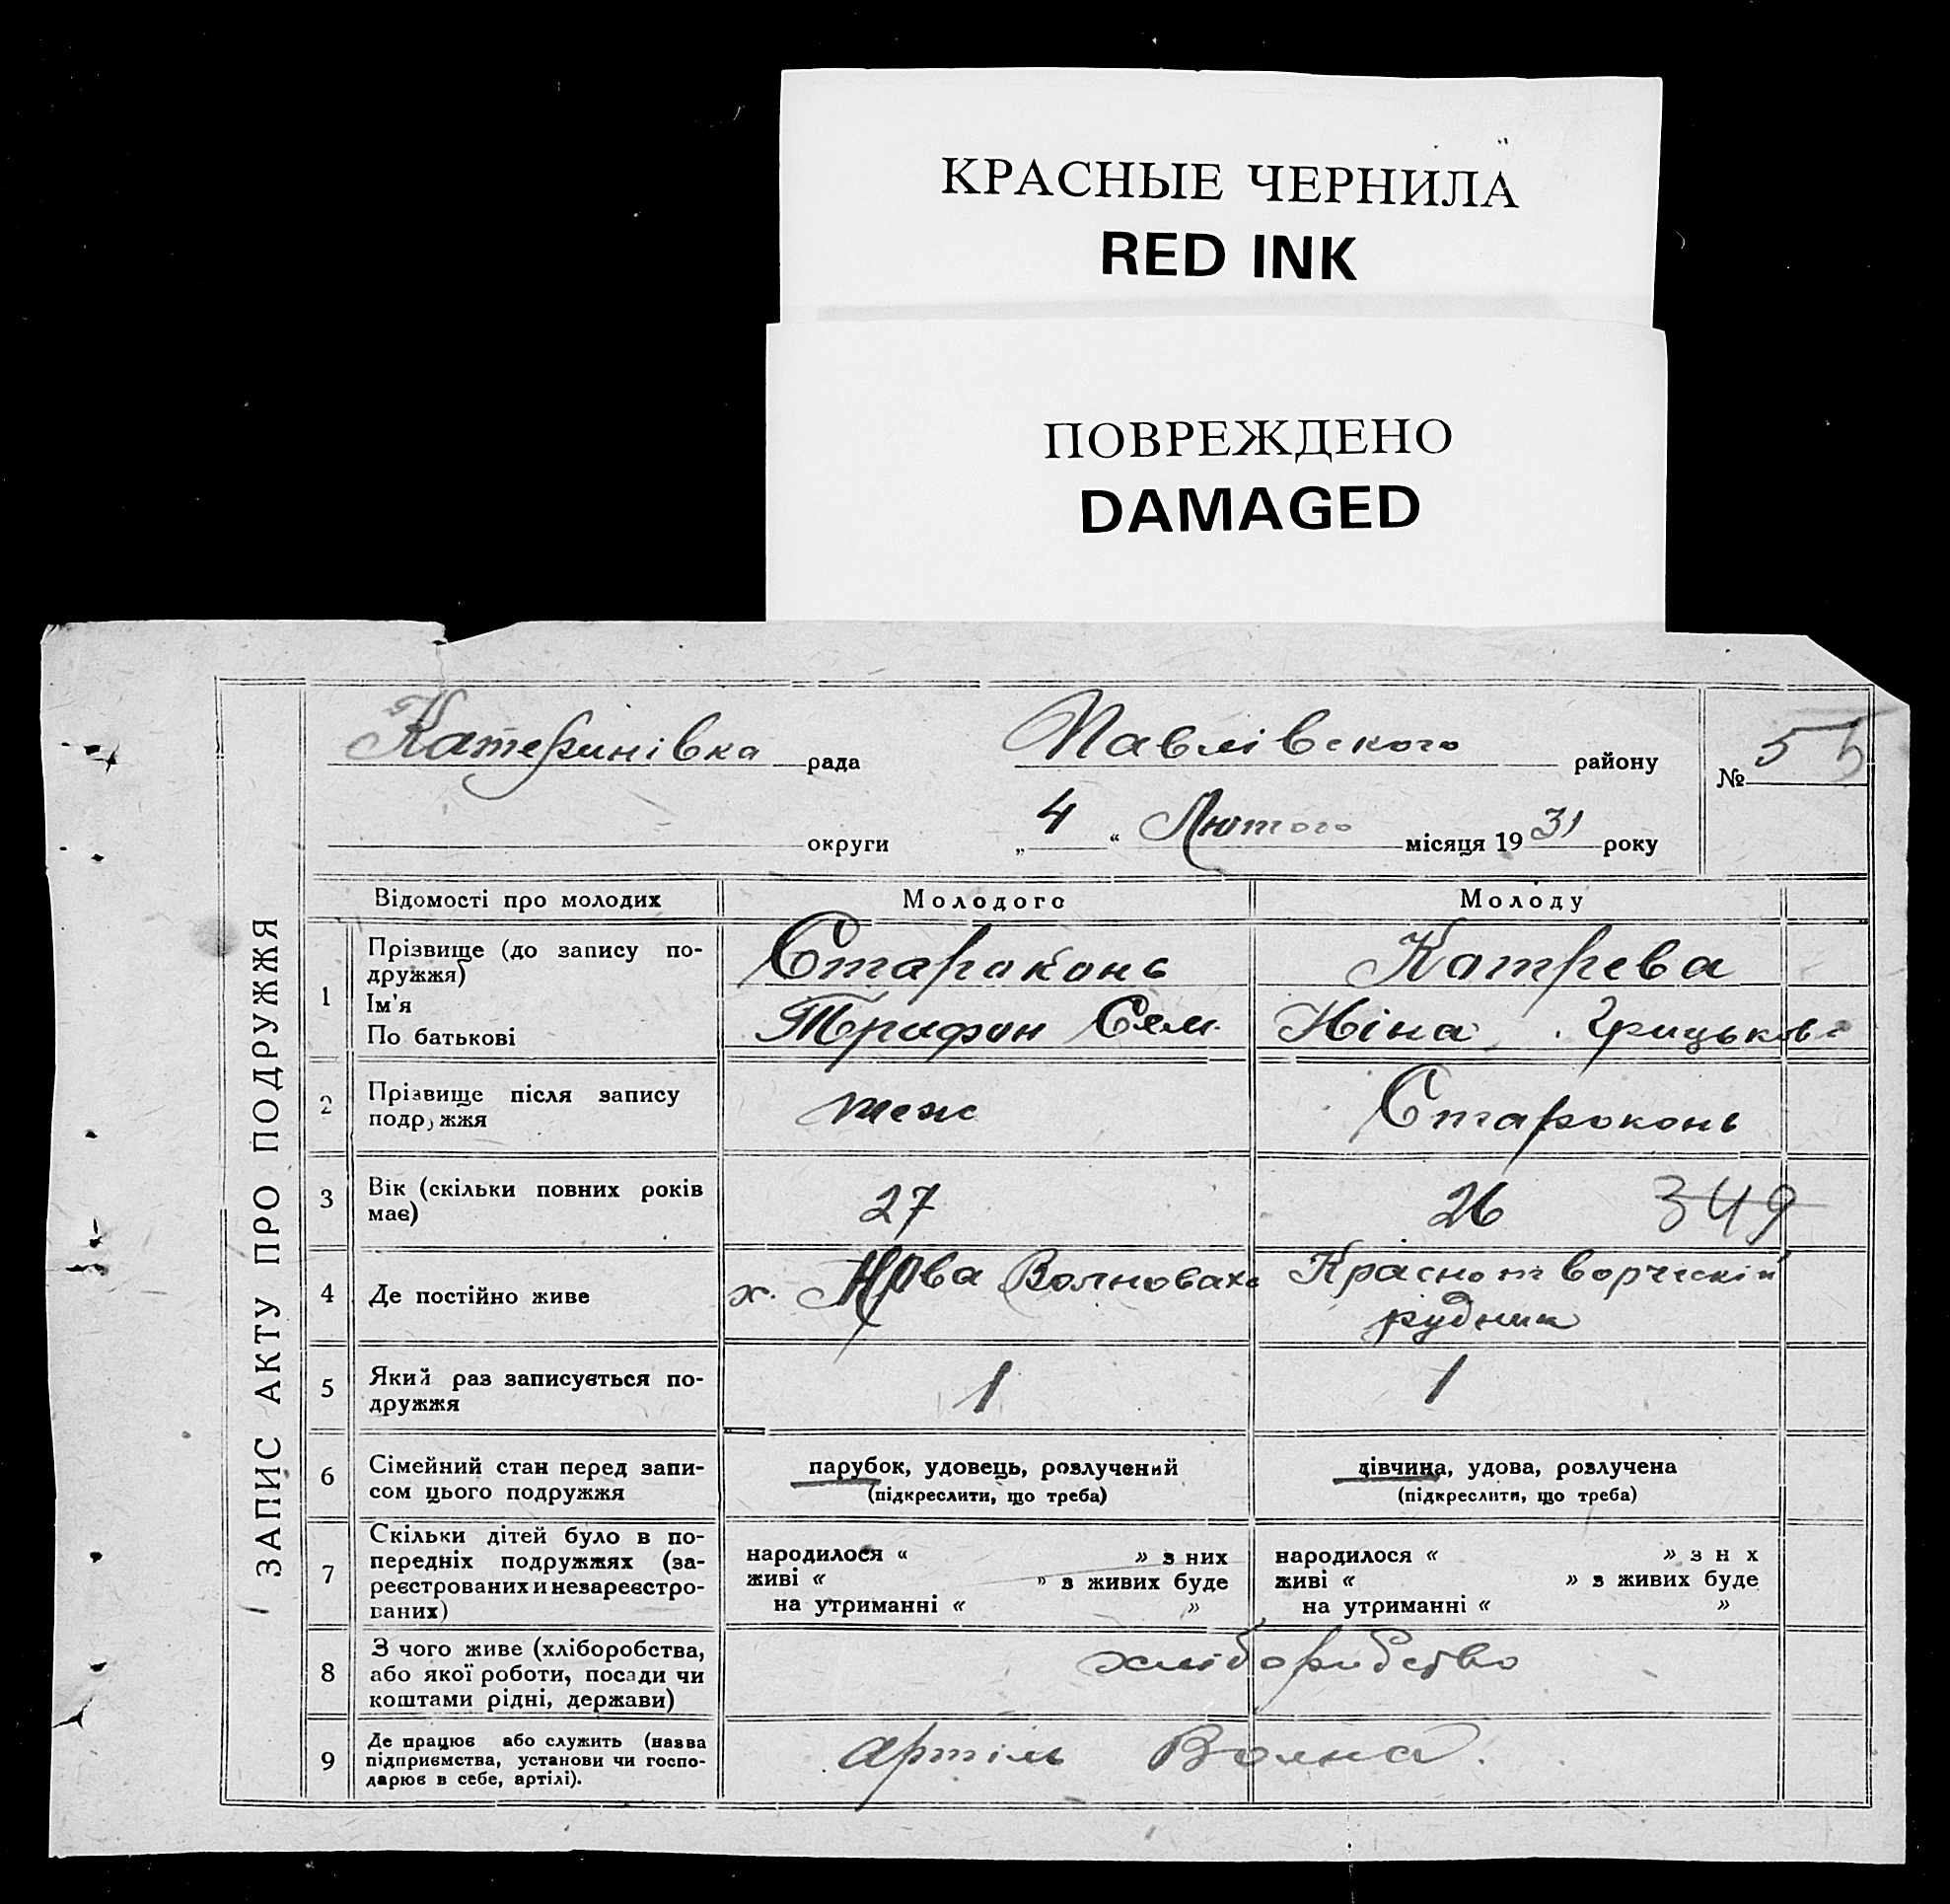 КРАСНЫЕ ЧЕРНИЛА
RED INK
ПОВРЕЖДЕНО
DAMAGED
ЗАПИС АКТУ ПРО ПОДРУЖЖЯ
Катеринівка рада Павлівского району № 55
округи „ 4 “ Лютого місяця 1931 року
Відомості про молодих Молодого Молоду
1 Прізвище (до запису по-
дружжя) Староконь Катрева
Ім'я
По батькові Трифон Сем. Ніна Грицьков
2 Прізвище після запису
подружжя теж Староконь
3 Вік (скільки повних років
має) 27 26 349
4 Де постійно живе х. Нова Волноваха Краснотворческій
рудник
5 Який раз записується по-
дружжя 1 1
6 Сімейний стан перед запи-
сом цього подружжя парубок, удовець, розлучений дівчина, удова, розлучена
(підкреслити, що треба) (підкреслити, що треба)
7 Скільки дітей було в по-
передніх подружжях (за-
реєстрованих и незареєстро-
ваних) народилося « » з них народилося « » з н х
живі « » з живих буде живі « » з живих буде
на утриманні « » на утриманні « »
8 З чого живе (хліборобства,
або якої роботи, посади чи
коштами рідні, держави) хліборобство
9 Де працює або служить (назва
підприємства, установи чи госпо-
дарює в себе, артілі). артіль Волна.